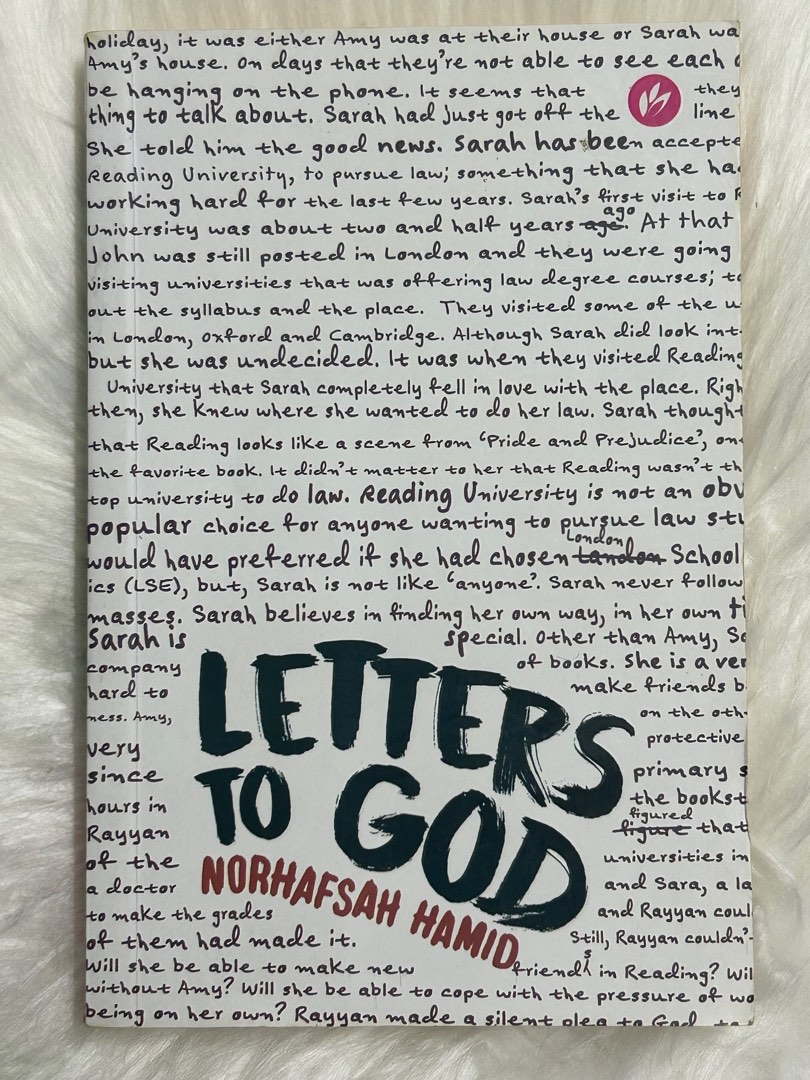 holiday, it was either Amy was at their house or Sarah wa
Amy's house. On days that they're not able to see each
be hanging on the phone. It seems that they
thing to talk about. Sarah had just got off the line
She told him the good news. Sarah has been accepte
Reading University, to pursue law; something that she ha
working hard for the last few years. Sarah's first visit to R
ago
University was about two and half years age. At that
John was still posted in London and they were going
visiting universities that was offering law degree courses; to
out the syllabus and the place. They visited some of the u
in London, Oxford and Cambridge. Although Sarah did look int
but she was undecided. It was when they visited Reading
University that Sarah completely fell in love with the place. Righ
then, she knew where she wanted to do her law. Sarah thought
that Reading looks like a scene from 'Pride and Prejudice', on
the favorite book. It didn't matter to her that Reading wasn't th
top university to do law. Reading University is not an obv
popular choice for anyone wanting to pursue law stu
London
would have preferred if she had chosen Landon School
ics (LSE), but, Sarah is not like 'anyone'. Sarah never follow
masses. Sarah believes in finding her own way, in her own ti
Sarah is special. Other than Amy, Sa
company of books. She is a ver
hard to make friends b
ness. Amy, on the oth
very protective
since primary s
LETTERS
TO GOD
NORHAFSAH HAMID
hours in the books
figured
Rayyan figure that
of the universities in
a doctor and Sara, a la
to make the grades and Rayyan coul
of them had made it. Still, Rayyan couldn'
s
Will she be able to make new friend in Reading? Wil
without Amy? Will she be able to cope with the pressure of wo
being on her own? Rayyan made a silent plea to God, to